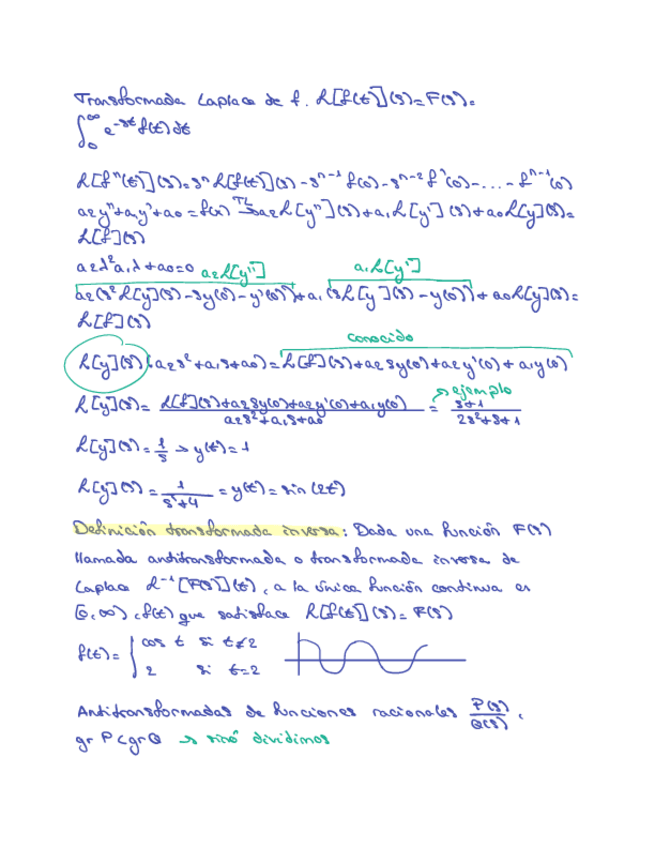 Transformada Laplace de f. L[f(t)](s)=F(s)=
∫₀^∞ e^-st f(t)dt
L[fⁿ(t)](s)=sⁿL[f(t)](s)-sⁿ⁻¹f(0)-sⁿ⁻²f'(0)-...-fⁿ⁻¹(0)
a2y''+a1y'+a0=f(x) TL→ a2L[y''](s)+a1L[y'](s)+a0L[y](s)=
L[f](s)
a2λ²a1λ+a0=0 a2L[y''] a1L[y']
a2(s²L[y](s)-sy(0)-y'(0))+a1(sL[y](s)-y(0))+a0L[y](s)=
L[f](s)
conocido
L[y](s)(a2s²+a1s+a0)=L[f](s)+a2sy(0)+a2y'(0)+a1y(0)
→ejemplo
L[y](s)= L[f](s)+a2sy(0)+a2y'(0)+a1y(0) / a2s²+a1s+a0 = s+1 / 2s²+s+1
L[y](s)=1/s → y(t)=1
L[y](s)=1/s²+4 = y(t)=sin(2t)
Definición transformada inversa: Dada una función F(s)
llamada antitransformada o transformada inversa de
Laplace L⁻¹[F(s)](t), a la única función continua en
[0,∞), f(t) que satisface L[f(t)](s)=F(s)
f(t)= { cos t si t≠2
2 si t=2
Antitransformadas de funciones racionales P(s)/Q(s),
gr P<gr Q → sinó dividimos